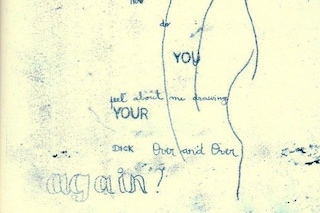 how
do
YOU
feel about me drawing
YOUR
DICK Over and Over
again?